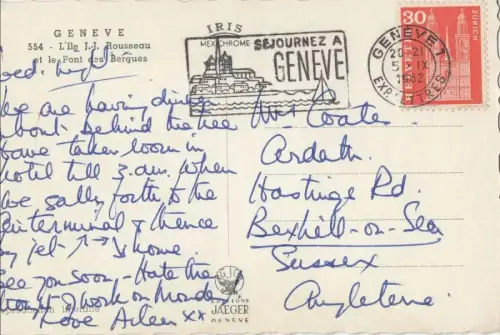 GENEVE
554 - L'Ile J.-J. Rousseau
et le Pont des Bergues
IRIS
MEXICHROME
SÉJOURNEZ A
GENÈVE
GENEVE 1
20-21
5. IX
1962
EXP. LETTRES
30
ZÜRICH
HELVETIA
Wed. night
We are having dinner
about behind the
have taken room in
hotel till 3.am. when
we sally forth to the
air terminal & thence
by jet home
See you soon - Hate the
thought of work on Monday
Love Aileen xx
Mrs Coates
Ardath
Hastings Rd.
Bexhill-on-Sea
Sussex
Angleterre
EDITIONS
JAEGER
GENEVE